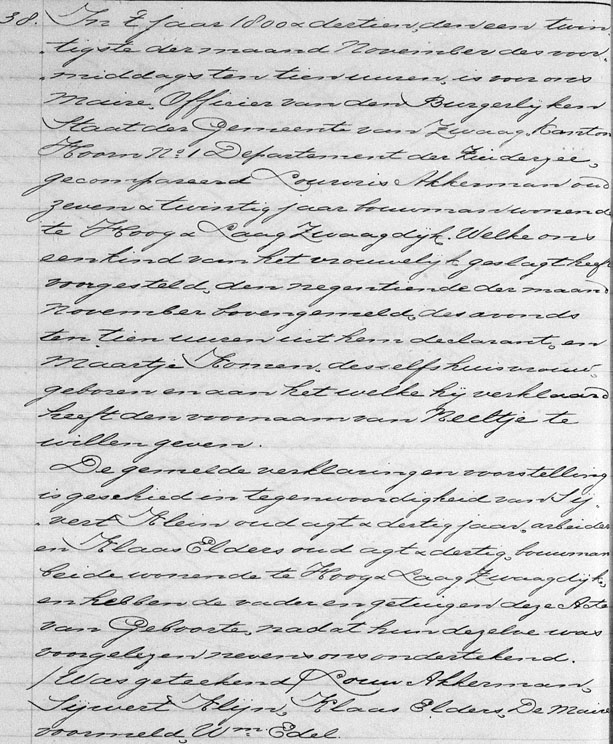 38. In 't jaar 1800 & dertien, den een twin
tigste der maand November des voor,
middags ten tien uuren, is voor ons
Maire, Officier van den Burgerlijken
Staat der Gemeente van Zwaag, Kanton
Hoorn No. 1 Departement der Zuiderzee,
gecompareerd Louwris Akkerman oud
zeven & twintig jaar bouwman wonend
te Hoog & Laag Zwaagdijk. Welke ons
een kind van het vrouwelijk geslagt heeft
voorgesteld, den negentiende der maand
November bovengemeld, des avonds
ten tien uuren uit hem declarant, en
Maartje Komen, desselfs huisvrouw,
geboren en aan het welke hij verklaard
heeft den voornaam van Neeltje te
willen geven.
De gemelde verklaring en voorstelling
is geschied in tegenwoordigheid van Sij,
vert Klein oud agt & dertig jaar, arbeider
en Klaas Elders oud agt & dertig, bouwman
beide wonende te Hoog & Laag Zwaagdijk,
en hebben de vader en getuigen deze Acte
van Geboorte, nadat hun dezelve was
voorgelezen nevens ons ondertekend.
/Was geteekend/ Louw Akkerman,
Sijwert Klijn, Klaas Elders, De Maire
voormeld, Wm Edel